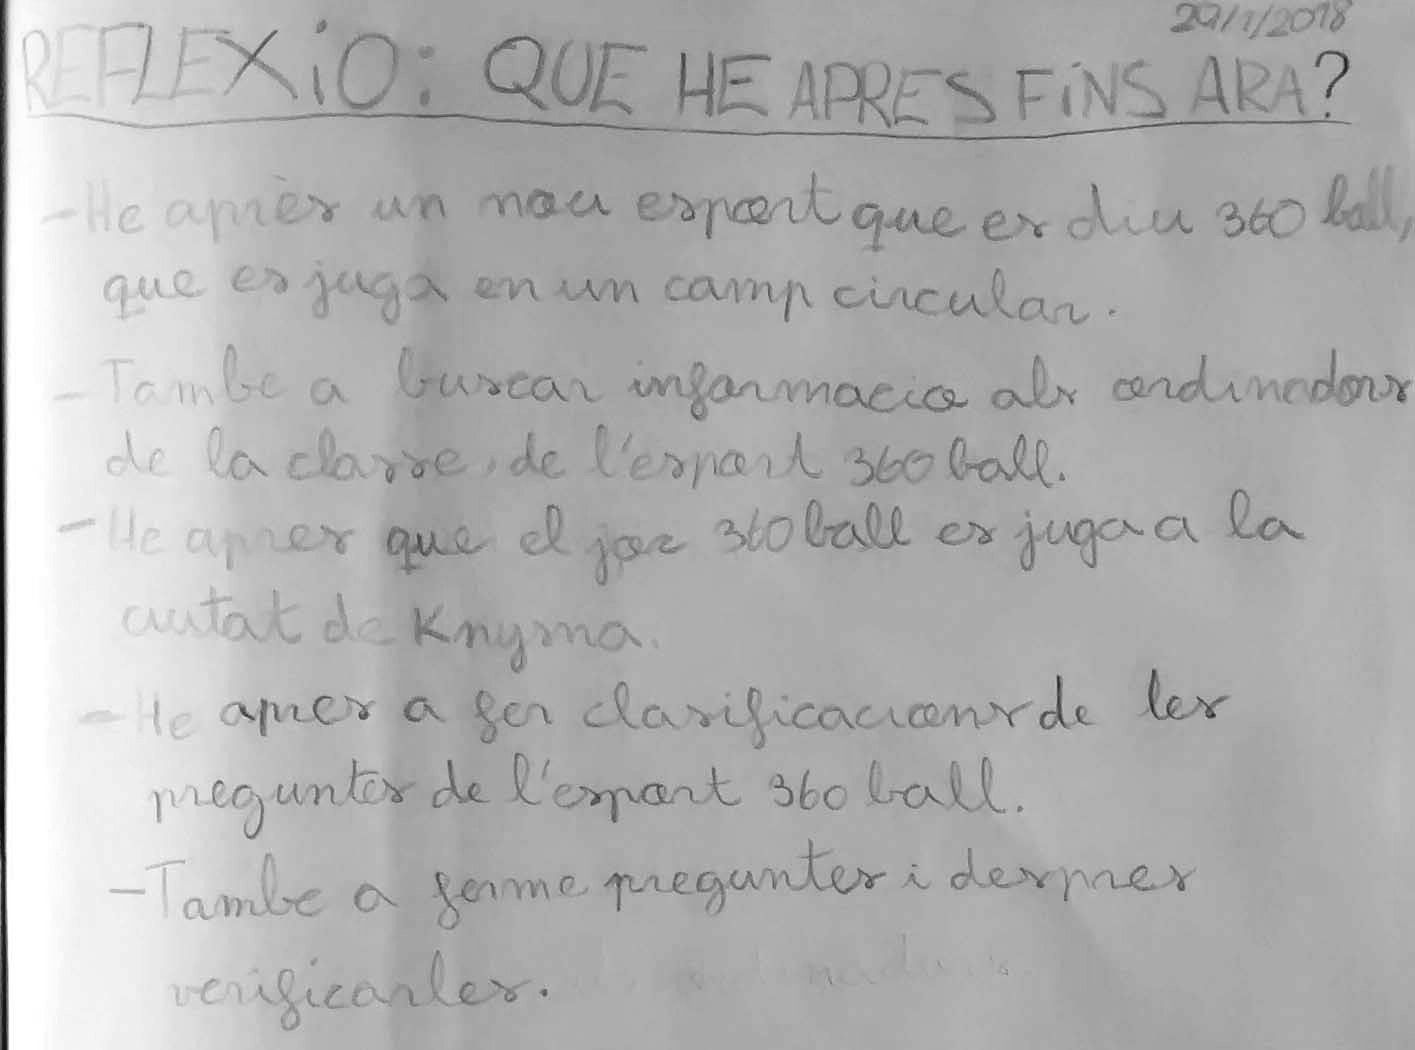 29/1/2018
REFLEXiO: QUE HE APRES FiNS ARA?
-He aprèr un nou esport que es diu 360 ball,
que es juga en un camp circular.
-Tambe a buscar informacio als ordinadors
de la classe, de l'esport 360 ball.
-He apres que el joc 360 ball es juga a la
ciutat de Knysna.
-He apres a fer clasificacions de les
preguntes de l'esport 360 ball.
-Tambe a ferme preguntes i despres
verificarles.